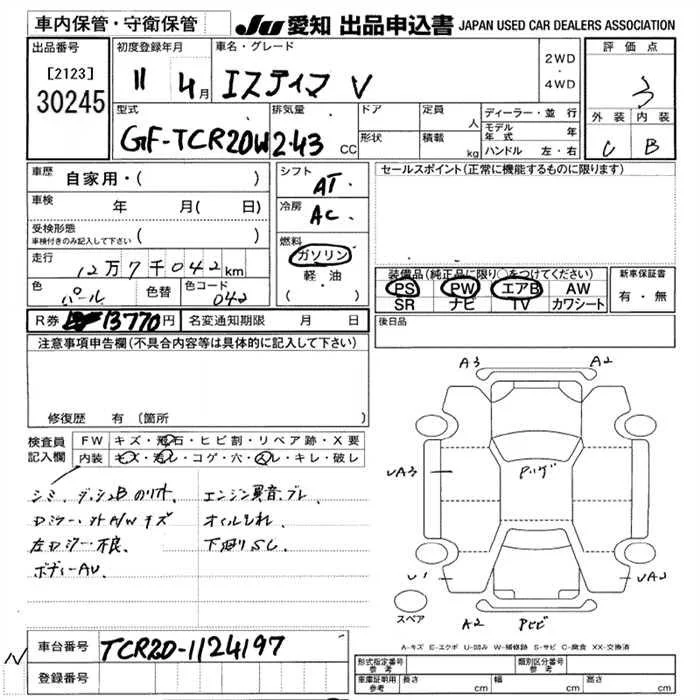 車内保管・守衛保管
JU 愛知 出品申込書 JAPAN USED CAR DEALERS ASSOCIATION
出品番号
[2123]
30245
初度登録年月
11 4月
車名・グレード
エスティマ V
2WD・4WD
評価点
3
外装 内装
C B
型式
GF-TCR20W
排気量
2.43 CC
ドア
形状
定員 人
積載 kg
ディーラー・並行
モデル年式 年
ハンドル 左・右
車歴 自家用・( )
車検 年 月( 日)
受検形態
車検付きのみ記入して下さい ( )
走行 12万7千042km
色 パール 色替 色コード 042
シフト AT.
冷房 AC.
燃料
ガソリン
・
軽油
( )
セールスポイント(正常に機能するものに限ります)
装備品(純正品に限り○をつけてください)
PS PW エアB AW
SR ナビ TV カワシート
新車保証書
有・無
R券 13770円 名変通知期限 月 日
後日品
注意事項申告欄(不具合内容等は具体的に記入して下さい)
修復歴 有(箇所 )
検査員記入欄
FW キズ・飛石・ヒビ割・リペア跡・X要
内装 キズ・汚レ・コゲ・穴・スレ・キレ・破レ
エンジン異音、ブレ
オイルもれ
下廻りSC
ボディーAU
A3 A2
UA3
U1 UA2
A2
スペア
A-キズ E-エクボ U-凹み W-補修跡 S-サビ C-腐食 XX-交換済
車台番号 TCR20-1124197
登録番号
形式指定番号 参考
類別区分番号 参考
車庫証明用 参考 長さ cm 幅 cm 高さ cm